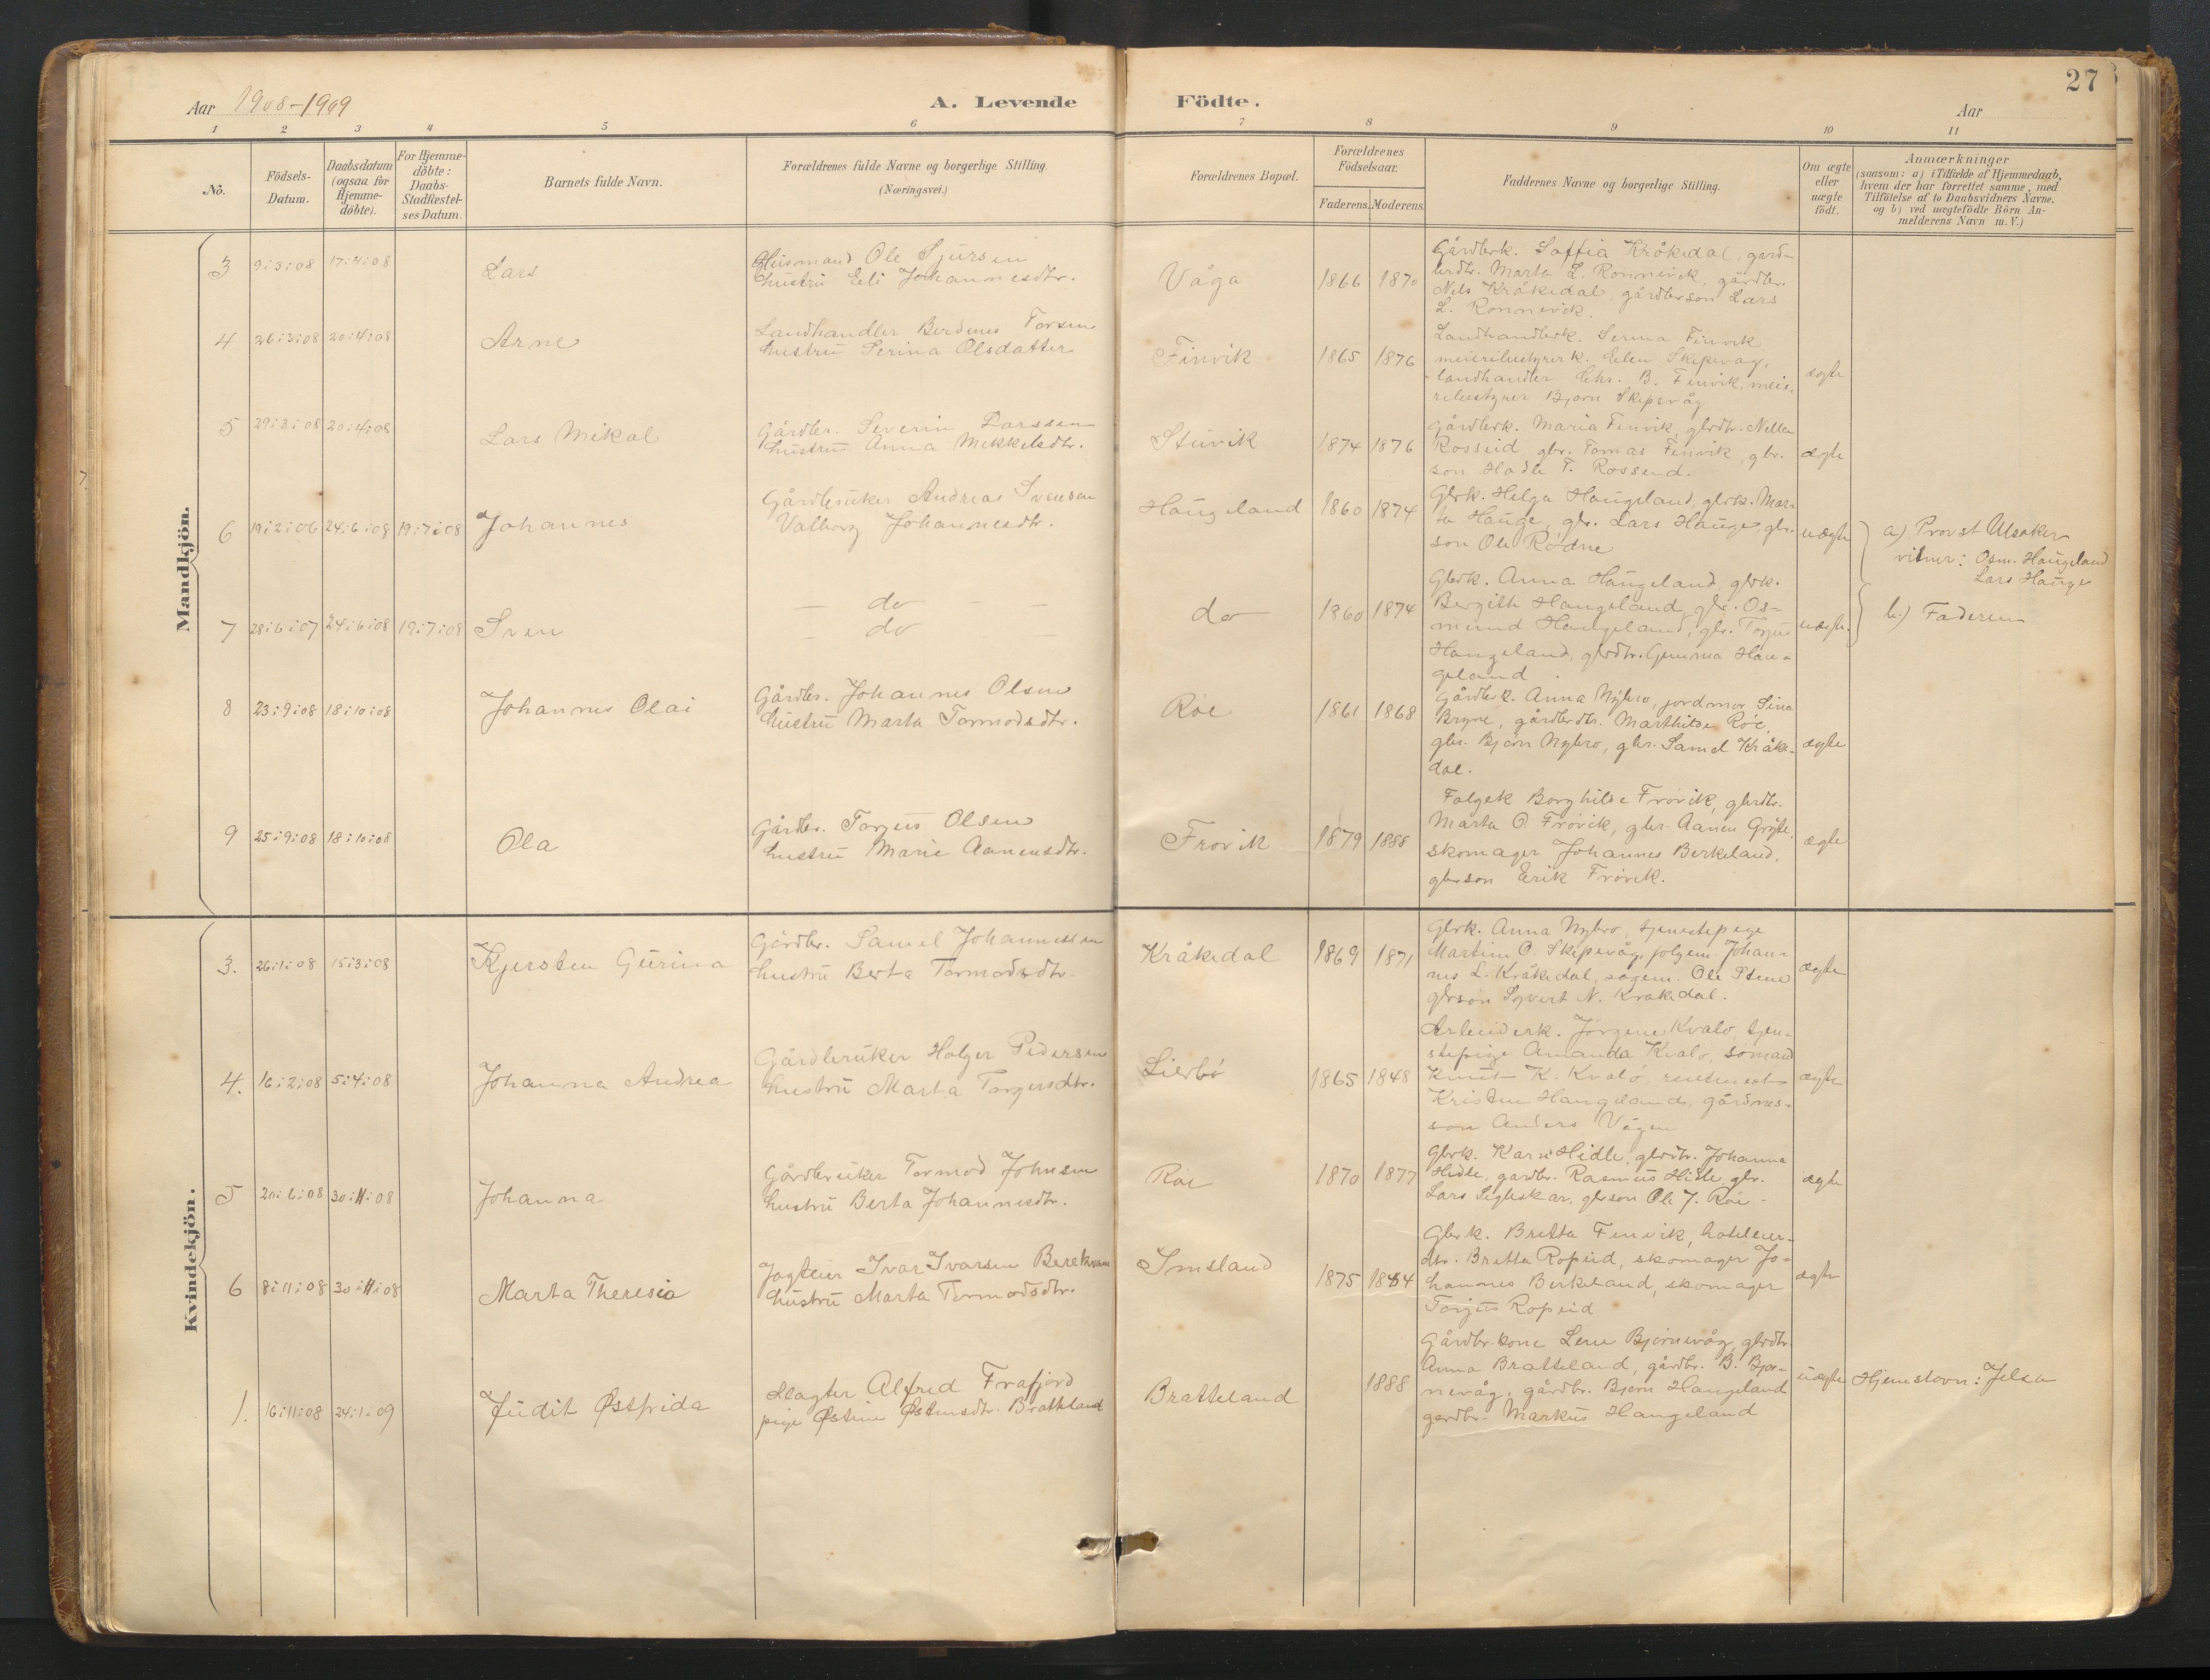 27
Aar 1908-1909
A. Levende Födte.
Aar
1 2 3 4 5 6 7 8 9 10 11
No.
Födsels-
Datum.
Daabsdatum
(ogsaa for
Hjemme-
döbte).
For Hjemme-
döbte:
Daabs-
Stadfæstel-
ses Datum.
Barnets fulde Navn.
Forældrenes fulde Navne og borgerlige Stilling.
(Næringsvei.)
Forældrenes Bopæl.
Forældrenes
Födselsaar.
Faderens. Moderens.
Faddernes Navne og borgerlige Stilling.
Om ægte
eller
uægte
födt.
Anmærkninger
(saasom: a) i Tilfælde af Hjemmedaab,
hvem der har forrettet samme, med
Tilföielse af to Daabsvidners Navne.
og b) ved uægtefödte Börn An-
melderens Navn m. V.)
Mandkjön.
3 9:3:08 17:4:08 Lars
Husmand Ole Sjursen
hustru Eli Johannesdtr.
Våga 1866 1870
Gårdbrk. Soffia Kråkedal, gård-
brdtr. Marta L. Ronnevik, gårdbr.
Nels Kråkedal, gårdbrson Lars
L. Ronnevik.
4 26:3:08 20:4:08 Arne
Landhandler Berdines Torsen
hustru Serina Olsdatter
Finvik 1865 1876
Landhandlerk. Serina Finvik
meieribestyrerk. Elen Skipevåg,
landhandler Chr. B. Finvik, meie-
ribestyrer Bjørn Skipevåg
ægte
5 29:3:08 20:4:08 Lars Mikal
Gårdbr. Severin Larssen
hustru Anna Mikkelsdtr.
Stuvik 1874 1876
Gårdbrk. Maria Finvik, gbrdtr. Nella
Rosseid, gbr. Tomas Finvik, gbr.
son Hadle T. Rosseid.
ægte
6 19:2:06 24:6:08 19:7:08 Johannes
Gårdbruker Andreas Svensen
Valborg Johannesdtr.
Haugeland 1860 1874
Gbrk. Helga Haugeland, gbrk. Mar-
ta Hauge, gbr. Lars Hauge, gbr.
son Ole Rødne
uægte
a) Provst Aksaker
vitner: Osm. Haugeland
Lars Hauge
7 28:6:07 24:6:08 19:7:08 Sven
— do — —
— do —
do 1860 1874
Gbrk. Anna Haugeland, gbrk.
Bergith Haugeland, gbr. Os-
mund Haugeland, gbr. Torjus
Haugeland, gbrdtr. Gunna Hau-
geland.
uægte
b.) Faderen
8 23:9:08 18:10:08 Johannes Olai
Gårdbr. Johannes Olsen
hustru Marta Tormodsdtr.
Røe 1861 1868
Gårdbrk. Anna Nybro, jordmor Sina
Bryne, gårdbrdtr. Marthilde Røe,
gbr. Bjørn Nybro, gbr. Samel Kråke-
dal.
ægte
9 25:9:08 18:10:08 Ola
Gårdbr. Torjus Olsen
hustru Marie Aanensdtr.
Frøvik 1879 1888
Folgek Borghilde Frøvik, gbrdtr.
Marta O. Frøvik, gbr. Aanen Gryte,
skomager Johannes Berkeland,
gbrson Erik Frøvik.
ægte
Kvindekjön.
3. 26:1:08 15:3:08 Kjersten Gurina
Gårdbr. Samel Johannessen
hustru Berta Tormodsdtr.
Kråkedal 1869 1871
Gbrk. Anna Nybro, tjenestepige
Martine O. Skipevåg, folgem. Johan-
nes L. Kråkedal, sagem. Ole Stene
gbrson Syvert N. Krakedal.
ægte
4. 16:2:08 5:4:08 Johanna Andrea
Gårdbruker Holger Pedersen
hustru Marta Torgersdtr.
Lierbø 1865 1848
Arbeiderk. Jørgine Kvalø tjen-
stepige Amanda Kvalø, sømand
Knut K. Kvalø,
Kristen Haugeland, gårdmds-
son Anders Vågen
ægte
5 20:6:08 30:11:08 Johanna
Gårdbruker Tormod Johnsen
hustru Berta Johannesdtr.
Røe 1870 1877
Gbrk. Kari Hidle, gbrdtr. Johanna
Hidle, gardbr. Rasmus Hidle, gbr.
Lars Tigleskar, gbrson Ole J. Røe.
ægte
6 8:11:08 30:11:08 Marta Theresia
Jagteier Ivar Ivarsen Berekvam
hustru Marta Tormodsdtr.
Imsland 1875 1884
Gbrk. Britta Finvik, hoteleier-
dtr. Britta Ropeid, skomager Jo-
hannes Birkeland, skomager
Torjus Ropeid
ægte
1. 16:11:08 24:1:09 Judit Østfrida
Slagter Alfred Frafjord
pige Østine Østensdtr. Bratteland
Bratteland 1888
Gårdbr.kone Lene Bjørnevåg, gbrdtr.
Anna Bratteland, gårdbr. B. Bjør-
nevåg, gårdbr. Bjørn Haugeland
gardbr. Markus Haugeland
uægte Hjemstavn: Jelsa